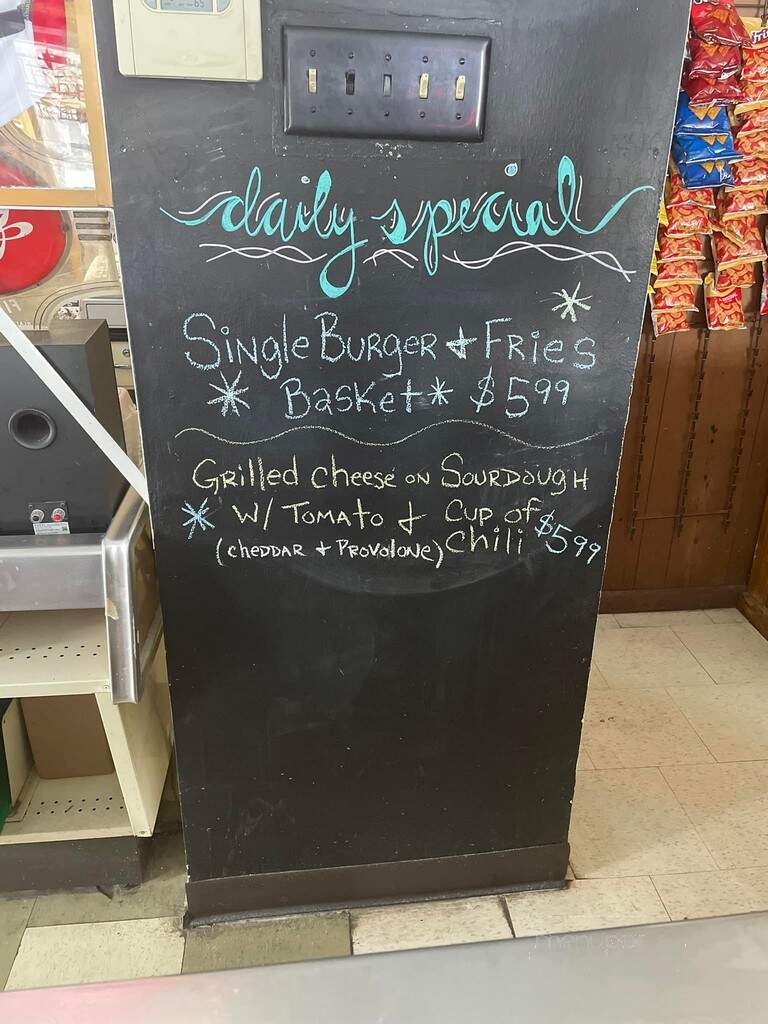 daily special
Single Burger & Fries
* Basket * $5.99
Grilled cheese on Sourdough
* w/ Tomato & Cup of
(cheddar & Provolone) Chili $5.99